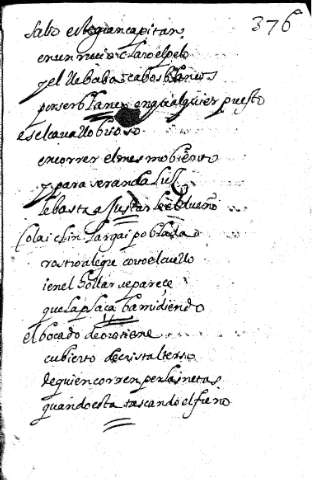 376
salio este gran capitan
en un rucio claro el pelo
y el llebaba cabos blancos
por ser blanco en qualquier puesto
es el cavallo brioso
en correr el mesmo biento
y para ser andaluz
le basta a justar de el dueño
cola i clin larga i poblada
rostro alegre corto el cuello
i en el hollar se parece
que la plaça ba midiendo
el bocado de oro tiene
cubierto de cristal terso
de quien corren perlas netas
quando esta tascando el freno